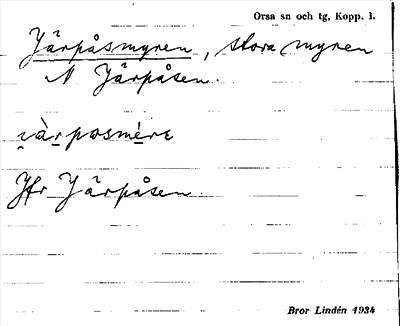 Orsa sn och tg, Kopp. l.
Järpåsmyren, stora myren
N Järpåsen.
Jfr Järpåsen.
Bror Lindén 1934